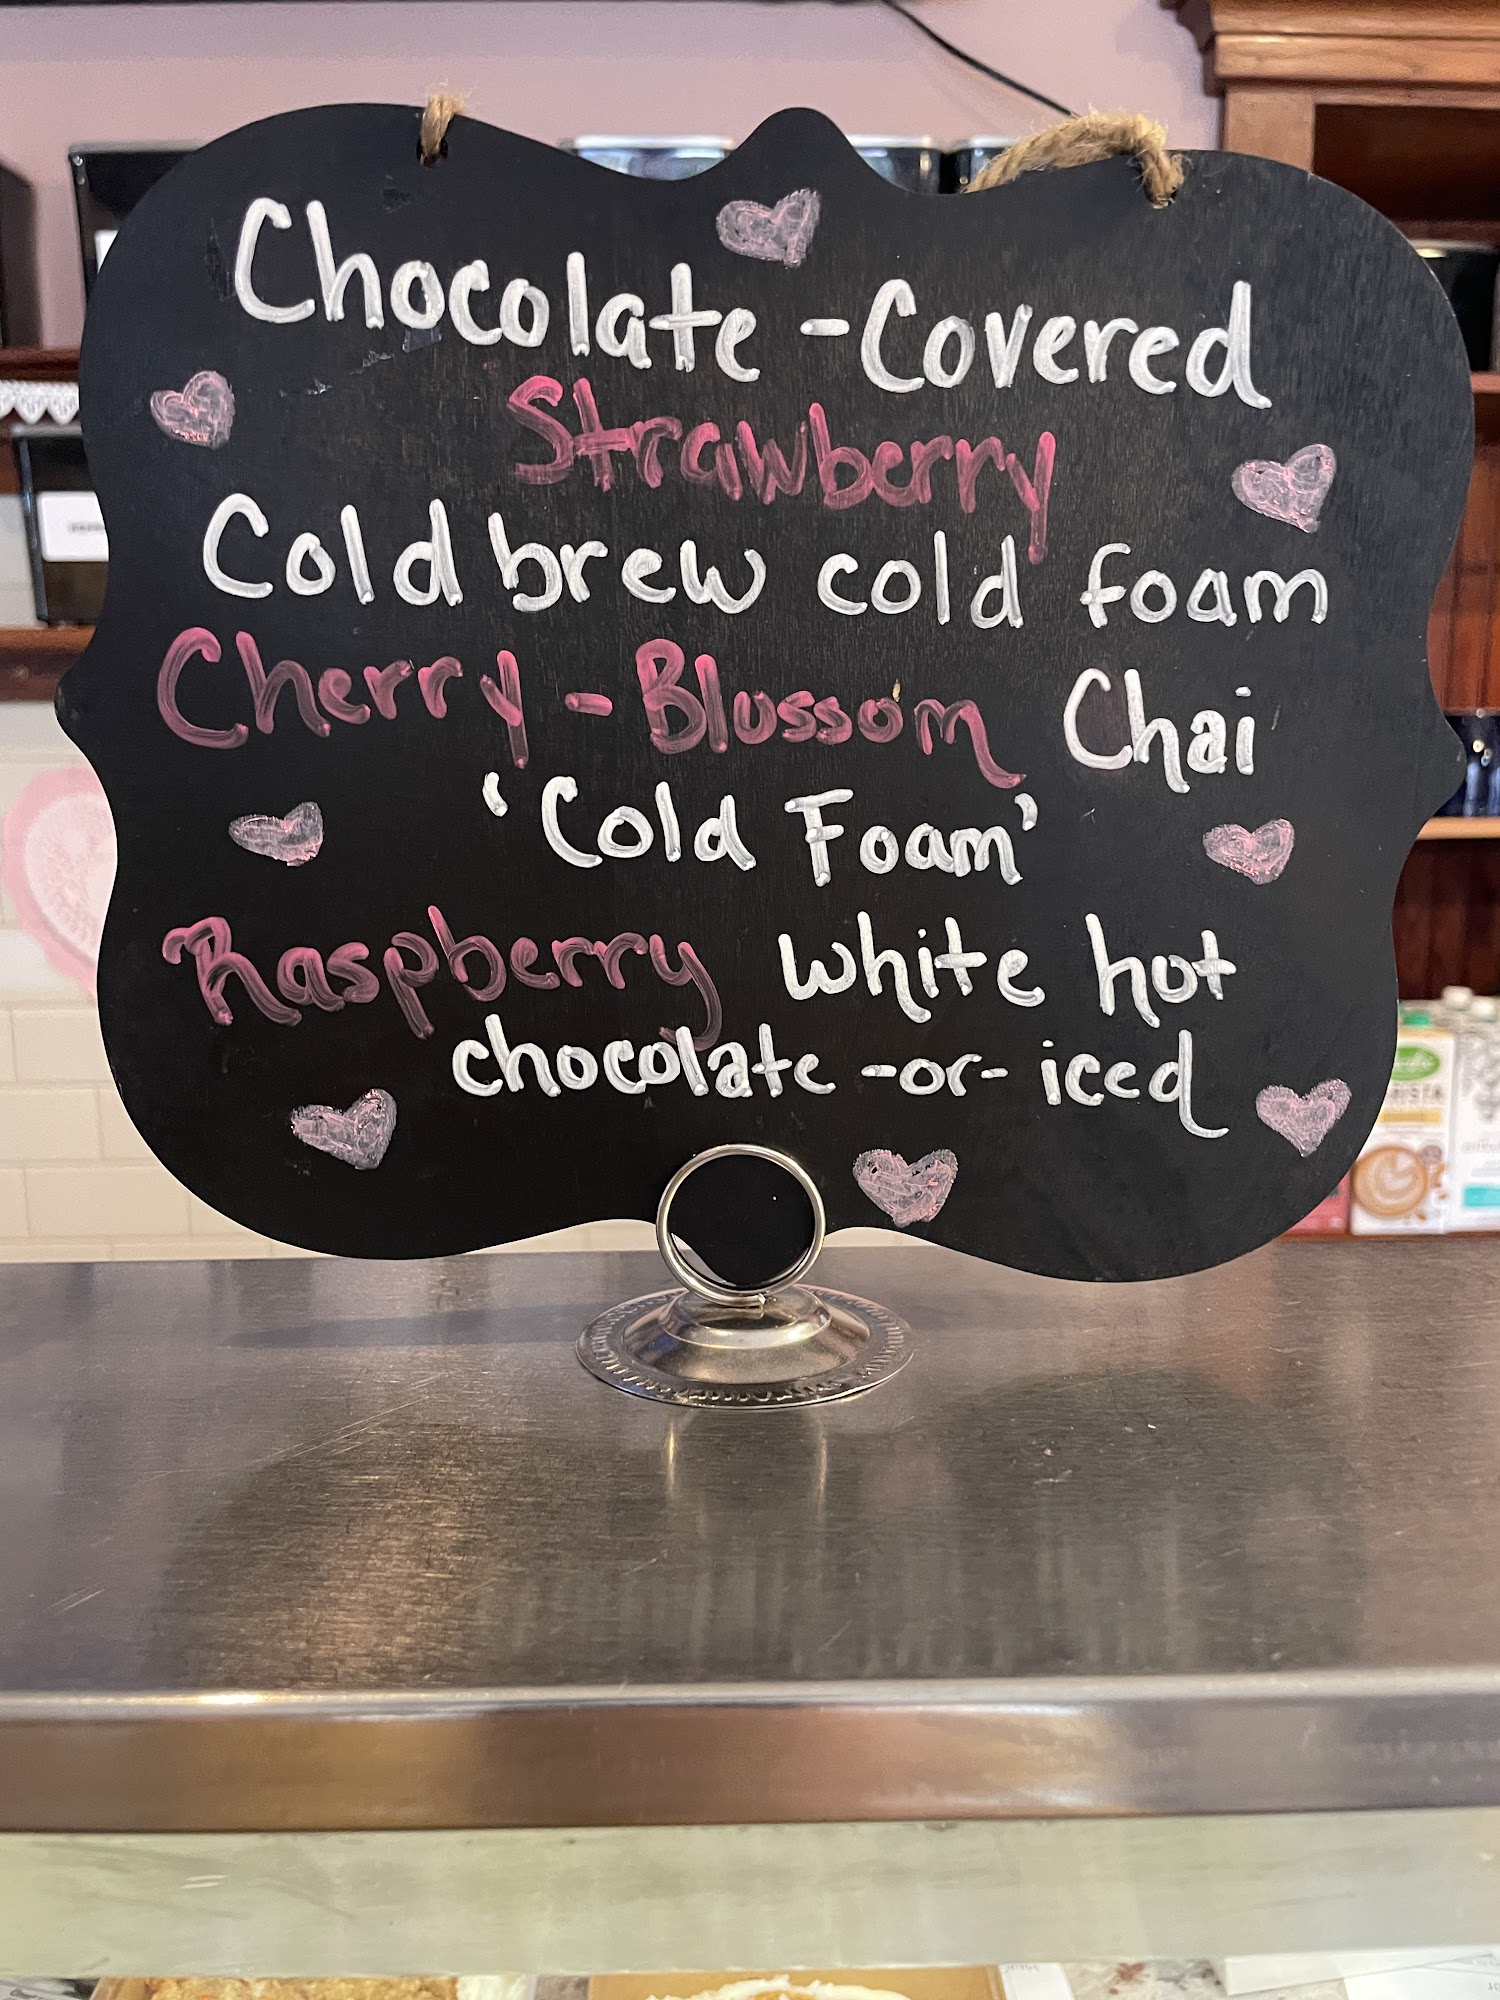 Chocolate-Covered
Strawberry
Cold brew cold foam
Cherry-Blossom Chai
'Cold Foam'
Raspberry white hot
chocolate -or- iced